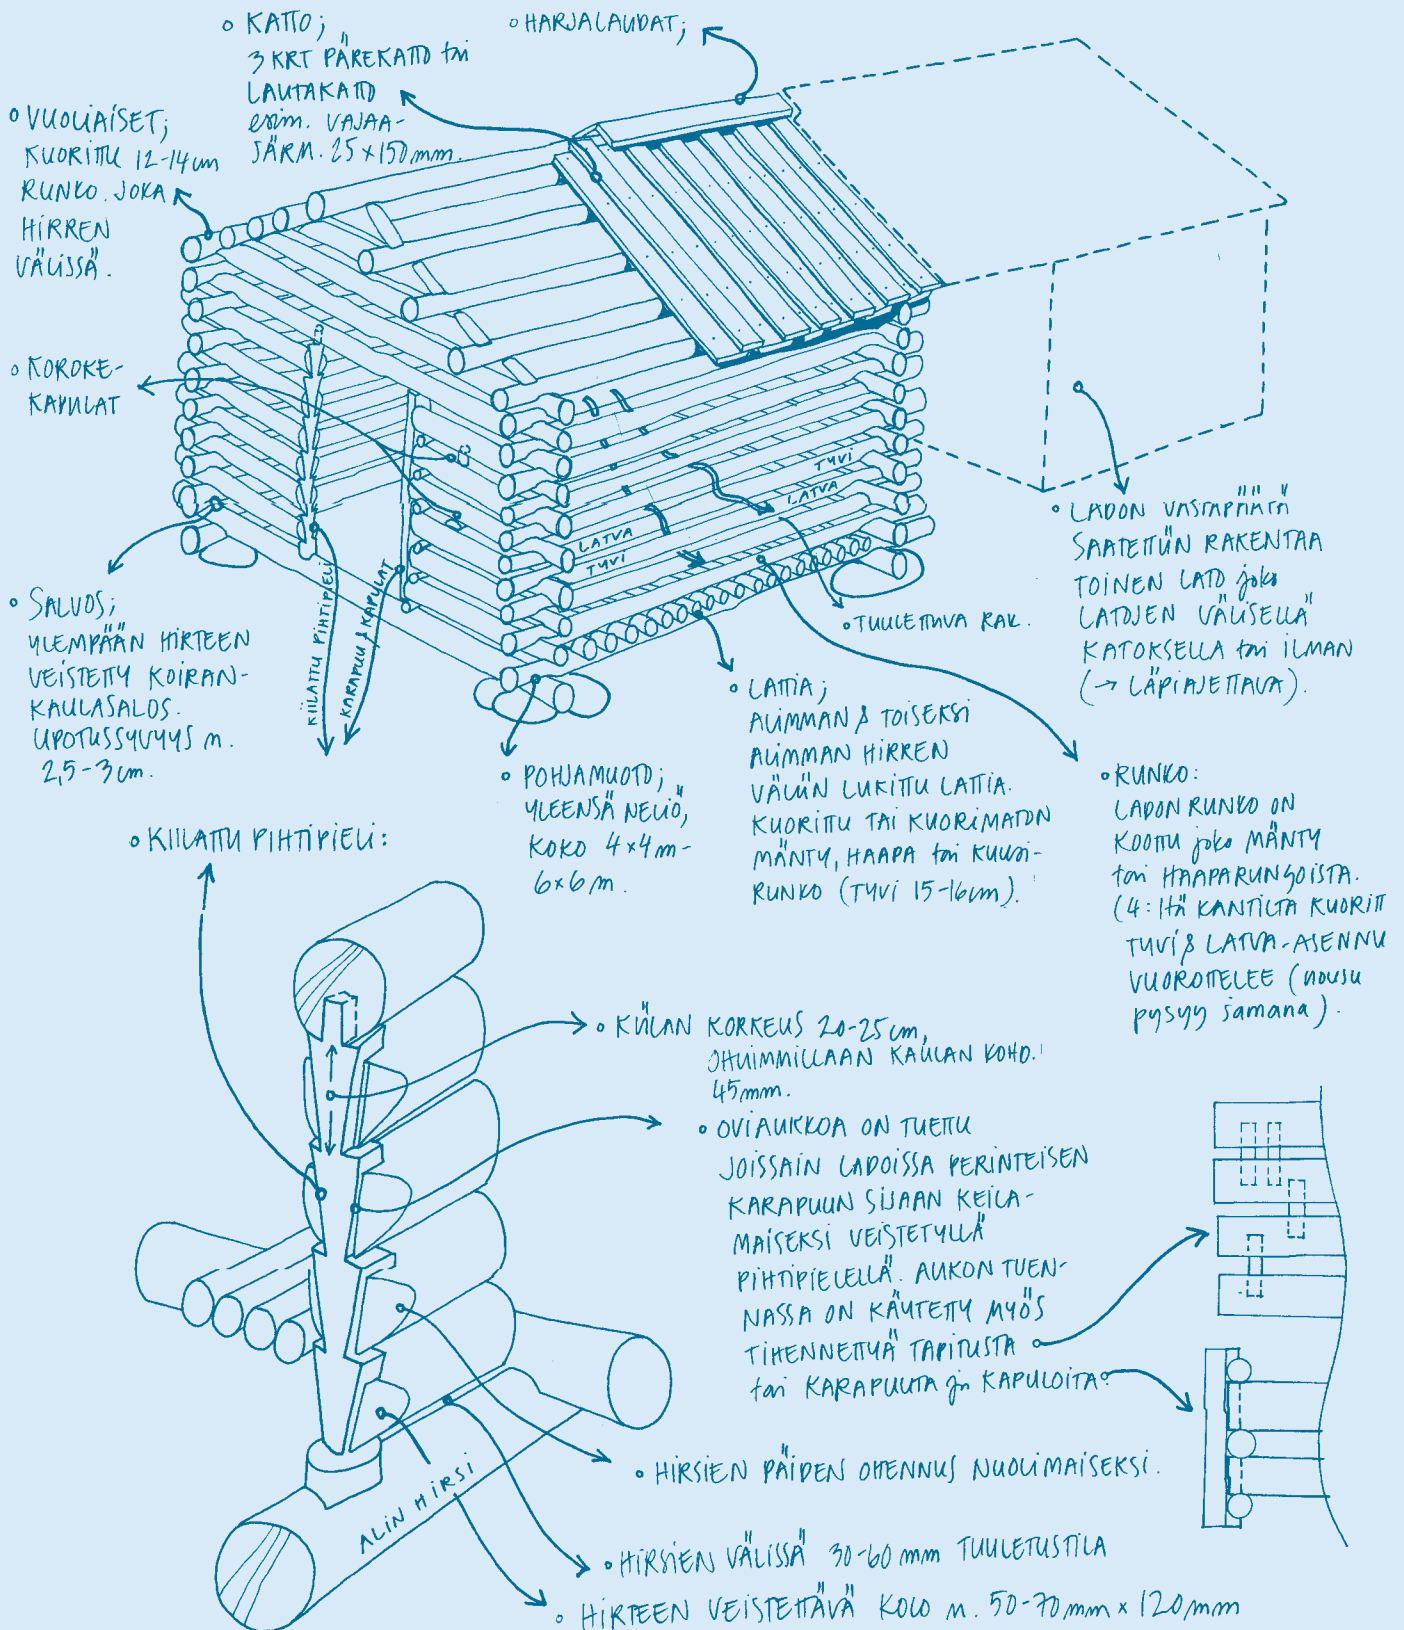 ◦ KATTO;
3 KRT PÄREKATTO tai
LAUTAKATTO
esim. VAJAA-
SÄRM. 25 x 150 mm.
◦ HARJALAUDAT;
◦ VUOLIAISET;
KUORITTU 12-14 cm
RUNKO. JOKA
HIRREN
VÄLISSÄ.
◦ KOROKE-
KAPULAT
◦ SALVOS;
YLEMPÄÄN HIRTEEN
VEISTETTY KOIRAN-
KAULASALOS.
UPOTUSSYVYYS n.
2,5-3 cm.
KIILATTU PIHTIPIELI
KARAPUU & KAPULAT
LATVA
TYVI
TYVI
LATVA
◦ TUULETTUVA RAK.
◦ LADON VASTAPÄÄTÄ
SAATETTIIN RAKENTAA
TOINEN LATO joko
LATOJEN VÄLISELLÄ
KATOKSELLA tai ILMAN
(→ LÄPIAJETTAVA).
◦ POHJAMUOTO;
YLEENSÄ NELIÖ,
KOKO 4 x 4 m -
6 x 6 m.
◦ LATTIA;
ALIMMAN & TOISEKSI
ALIMMAN HIRREN
VÄLIIN LUKITTU LATTIA.
KUORITTU TAI KUORIMATON
MÄNTY, HAAPA tai KUUSI-
RUNKO (TYVI 15-16 cm).
◦ RUNKO:
LADON RUNKO ON
KOOTTU joko MÄNTY
tai HAAPARUNGOISTA.
(4:ltä KANTILTA KUORITT
TYVI & LATVA-ASENNU
VUOROTTELEE (nousu
pysyy samana).
◦ KIILATTU PIHTIPIELI:
◦ KIILAN KORKEUS 20-25 cm,
OHUIMMILLAAN KAULAN KOHD.
45 mm.
◦ OVIAUKKOA ON TUETTU
JOISSAIN LADOISSA PERINTEISEN
KARAPUUN SIJAAN KEILA-
MAISEKSI VEISTETYLLÄ
PIHTIPIELELLÄ. AUKON TUEN-
NASSA ON KÄYTETTY MYÖS
TIHENNETTYÄ TAPITUSTA
tai KARAPUUTA ja KAPULOITA.
◦ HIRSIEN PÄIDEN OHENNUS NUOLIMAISEKSI.
ALIN HIRSI
◦ HIRSIEN VÄLISSÄ 30-60 mm TUULETUSTILA
◦ HIRTEEN VEISTETTÄVÄ KOLO n. 50-70 mm x 120 mm